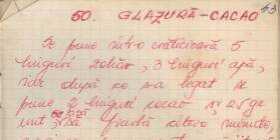 60. GLAZURĂ-CACAO
Se pune într-o crăticioară 5
linguri zahăr, 3 linguri apă,
iar după ce s-a legat se
pune 2 linguri cacao și se
unt, să fiarbă câteva minute